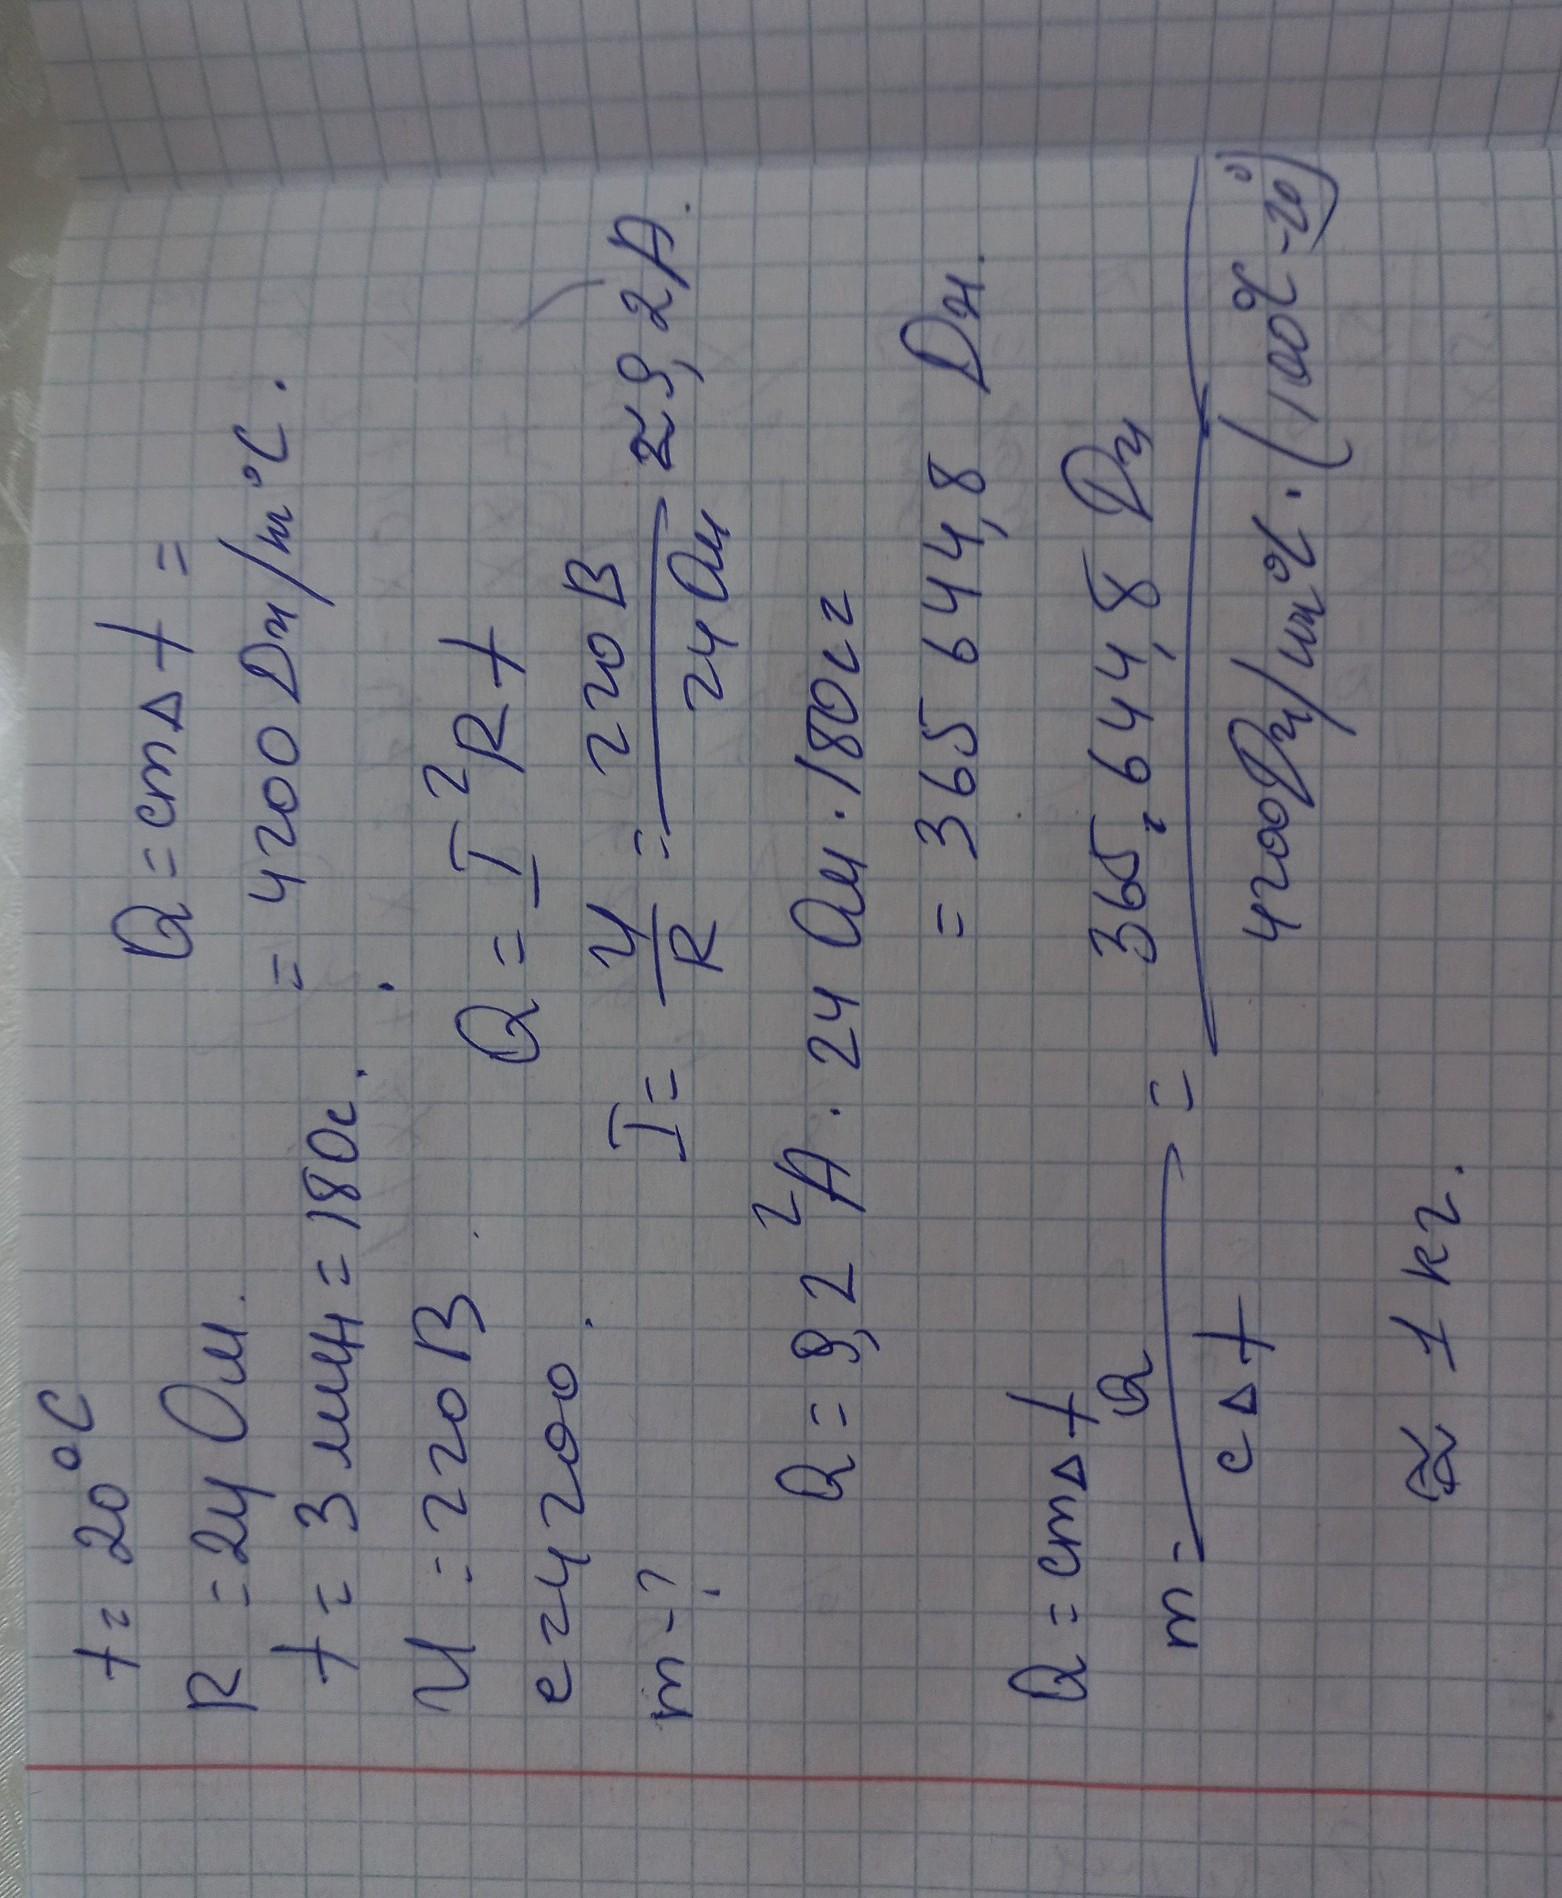 t = 20 °C
R = 24 Ом.
t = 3 мин = 180с.
U = 220 В
c = 4200.
m - ?
Q = cm∆t =
= 4200 Дж/кг °C.
Q = I²Rt
I = U/R = 220 В / 24 Ом ≈ 9,2 А.
Q = 9,2² А · 24 Ом · 180с =
= 365 644,8 Дж.
Q = cm∆t
m = Q / c∆t = 365 644,8 Дж / 4200Дж/кг°C · (100°C - 20°)
≈ 1 кг.